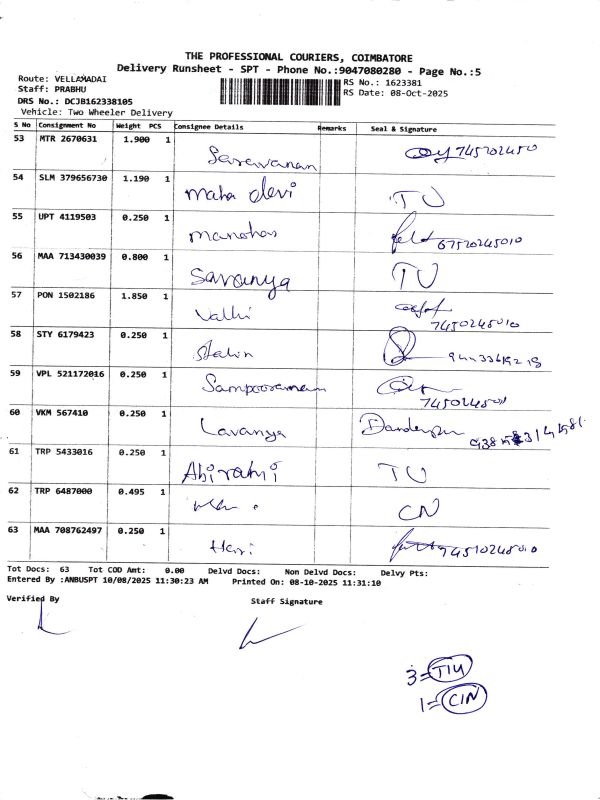 THE PROFESSIONAL COURIERS, COIMBATORE
Delivery Runsheet - SPT - Phone No.:9047080280 - Page No.:5
Route: VELLAMADAI
RS No.: 1623381
Staff: PRABHU
RS Date: 08-Oct-2025
DRS No.: DCJB162338105
Vehicle: Two Wheeler Delivery
S No Consignment No Weight PCS Consignee Details Remarks Seal & Signature
53 MTR 2670631 1.900 1
Saravanan 745202450
54 SLM 379656730 1.190 1
Maha devi TU
55 UPT 4119503 0.250 1
Manohar 67520245010
56 MAA 713430039 0.800 1
Saranya TU
57 PON 1502186 1.850 1
Valhi 7450245010
58 STY 6179423 0.250 1
Stalin
59 VPL 521172016 0.250 1
60 VKM 567410 0.250 1
Lavanya
61 TRP 5433016 0.250 1
Abirami TU
62 TRP 6487000 0.495 1
CN
63 MAA 708762497 0.250 1
Hari 74510245010
Tot Docs: 63 Tot COD Amt: 0.00 Delvd Docs: Non Delvd Docs: Delvy Pts:
Entered By :ANBUSPT 10/08/2025 11:30:23 AM Printed On: 08-10-2025 11:31:10
Verified By Staff Signature
3=TIU
1=CIN